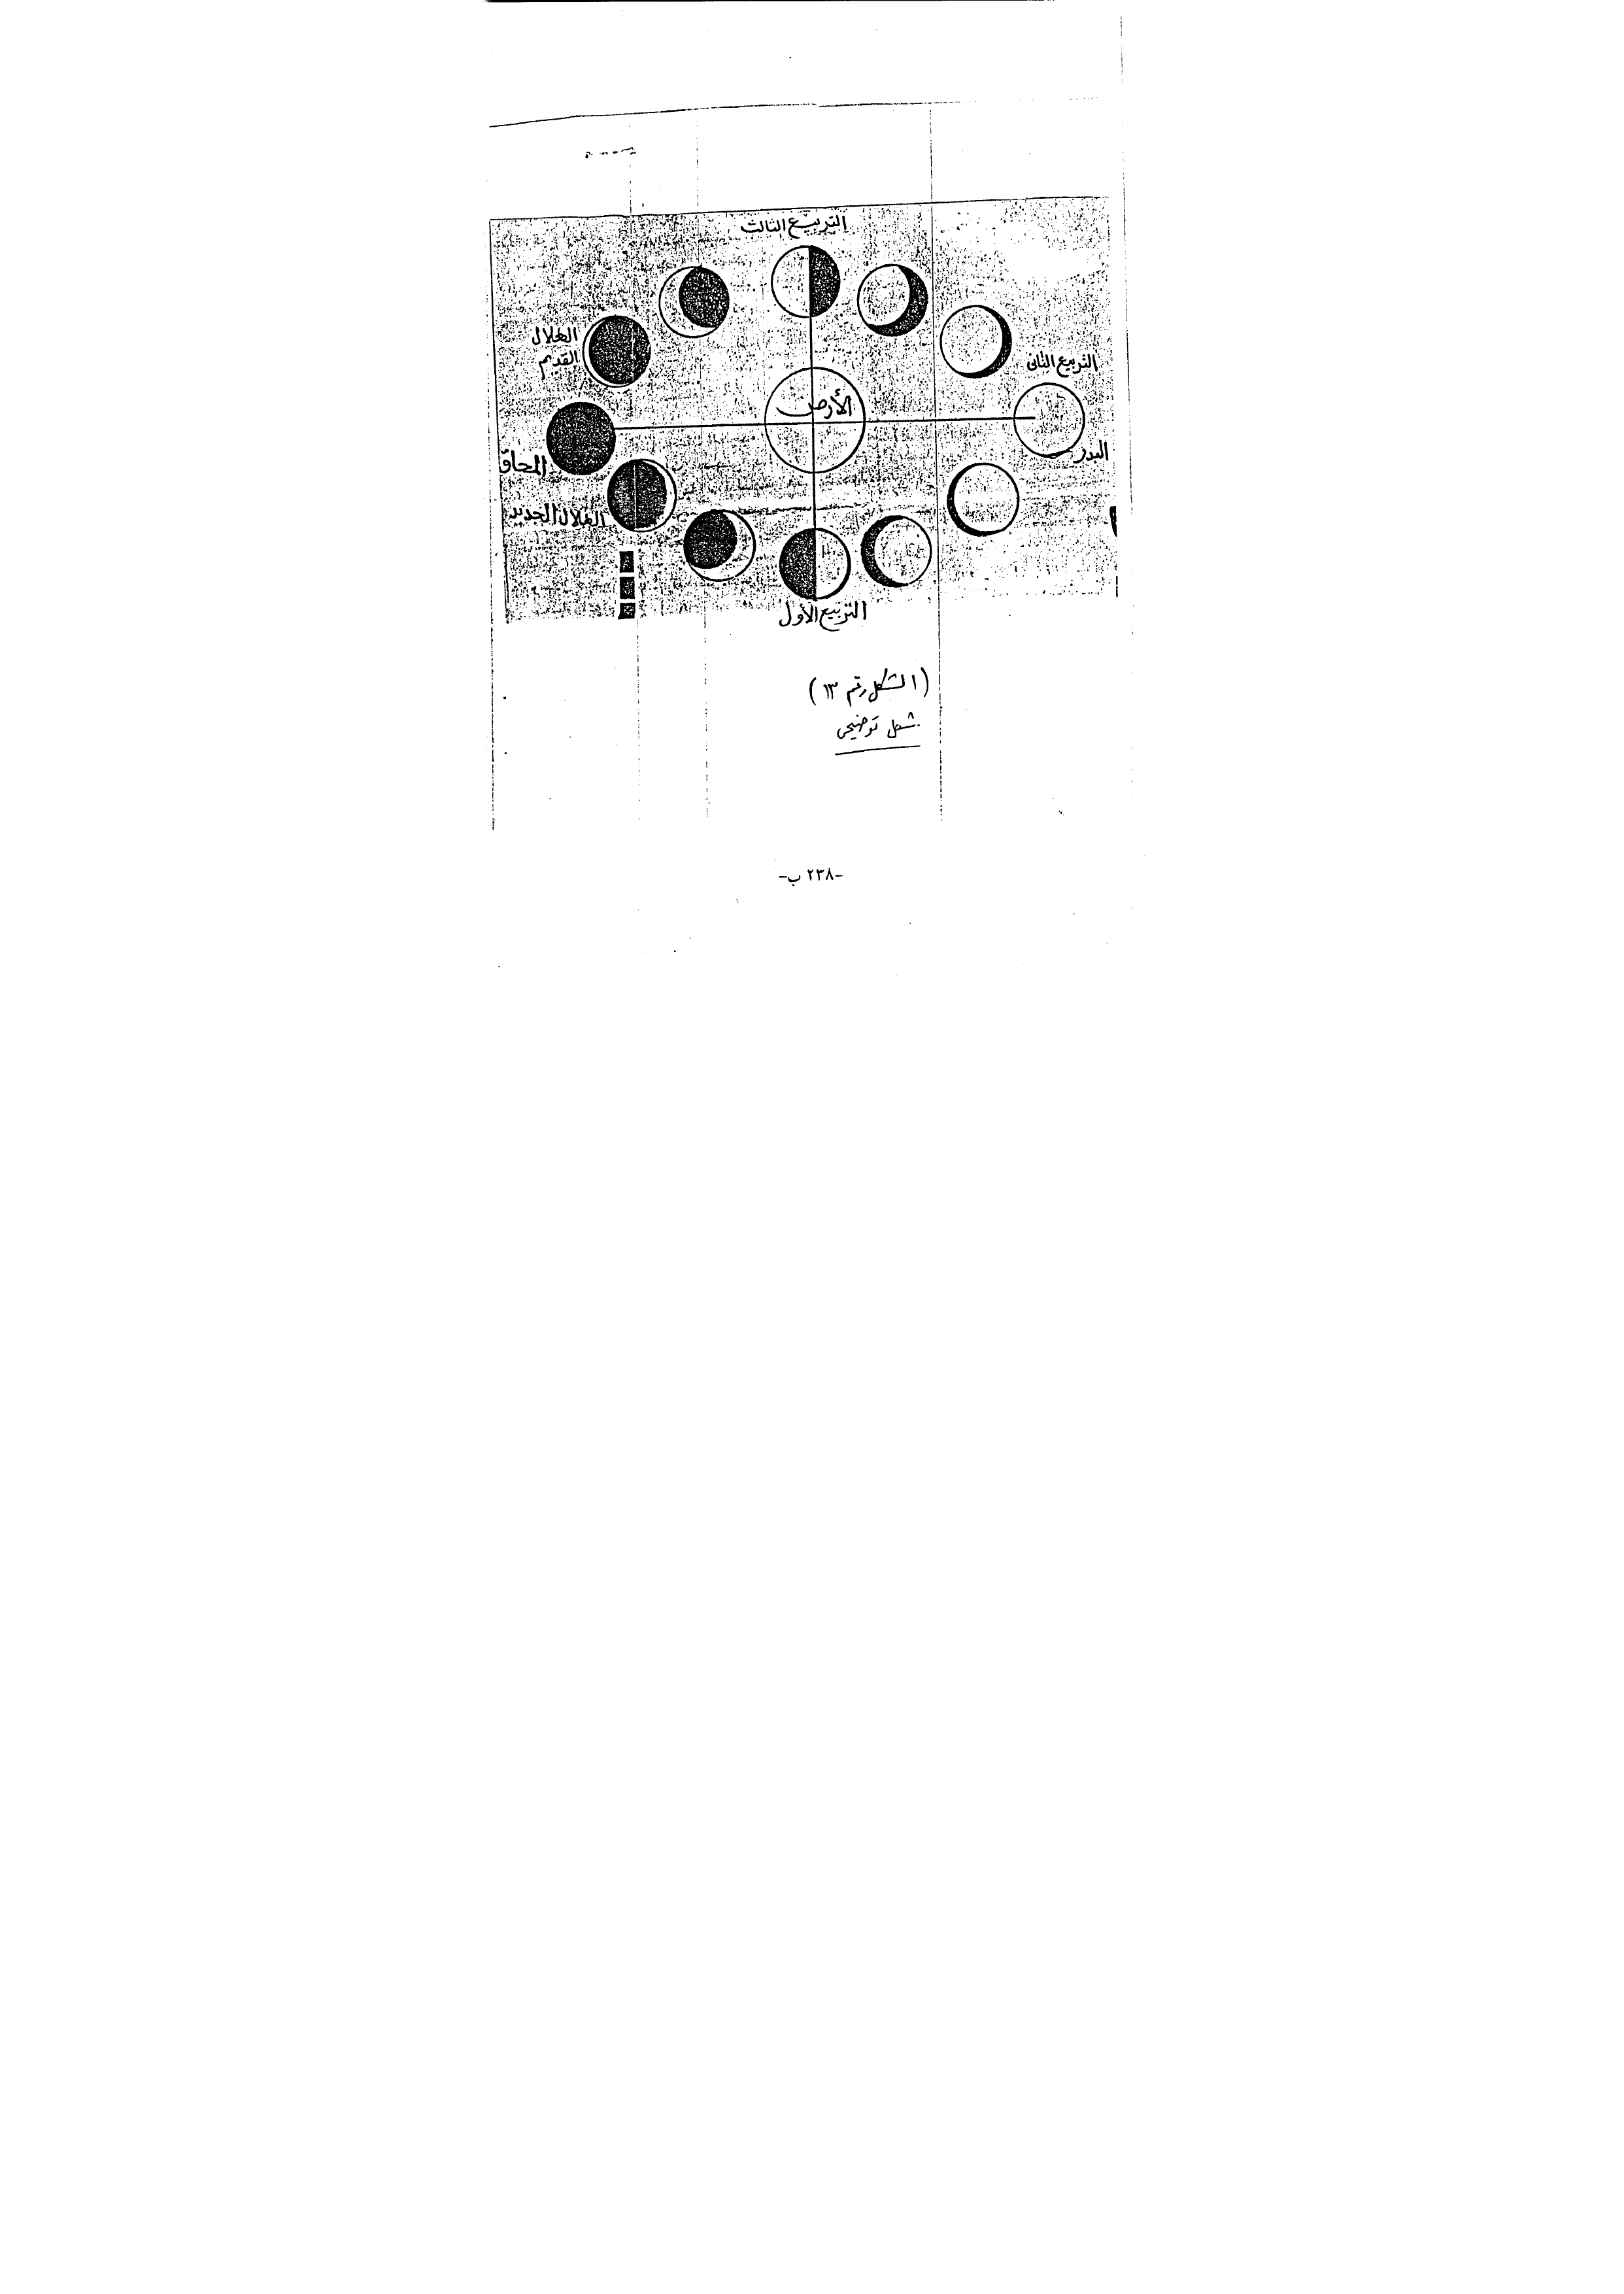 التربيع الثالث
الهلال
القديم
التربيع الثانى
الأرض
البدر
المحاق
الهلال الجديد
التربيع الأول
(الشكل رقم ١٣)
شكل توضيحى
-٢٣٨ ب-